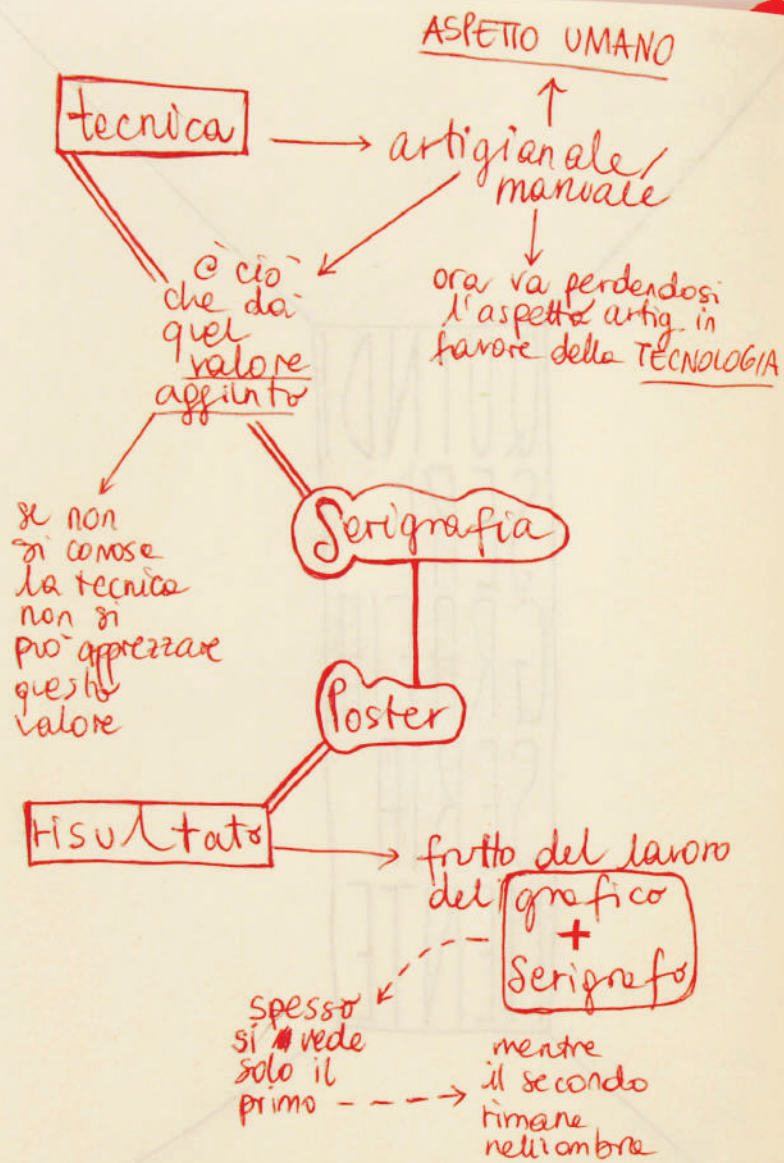 ASPETTO UMANO
tecnica
artigianale/
manuale
è ciò
che dà
quel
valore
aggiunto
ora va perdendosi
l'aspetto artig. in
favore della TECNOLOGIA
se non
si conosce
la tecnica
non si
può apprezzare
questo
valore
Serigrafia
Poster
risultato
frutto del lavoro
del grafico
+
serigrafo
spesso
si vede
solo il
primo
mentre
il secondo
rimane
nell'ombra